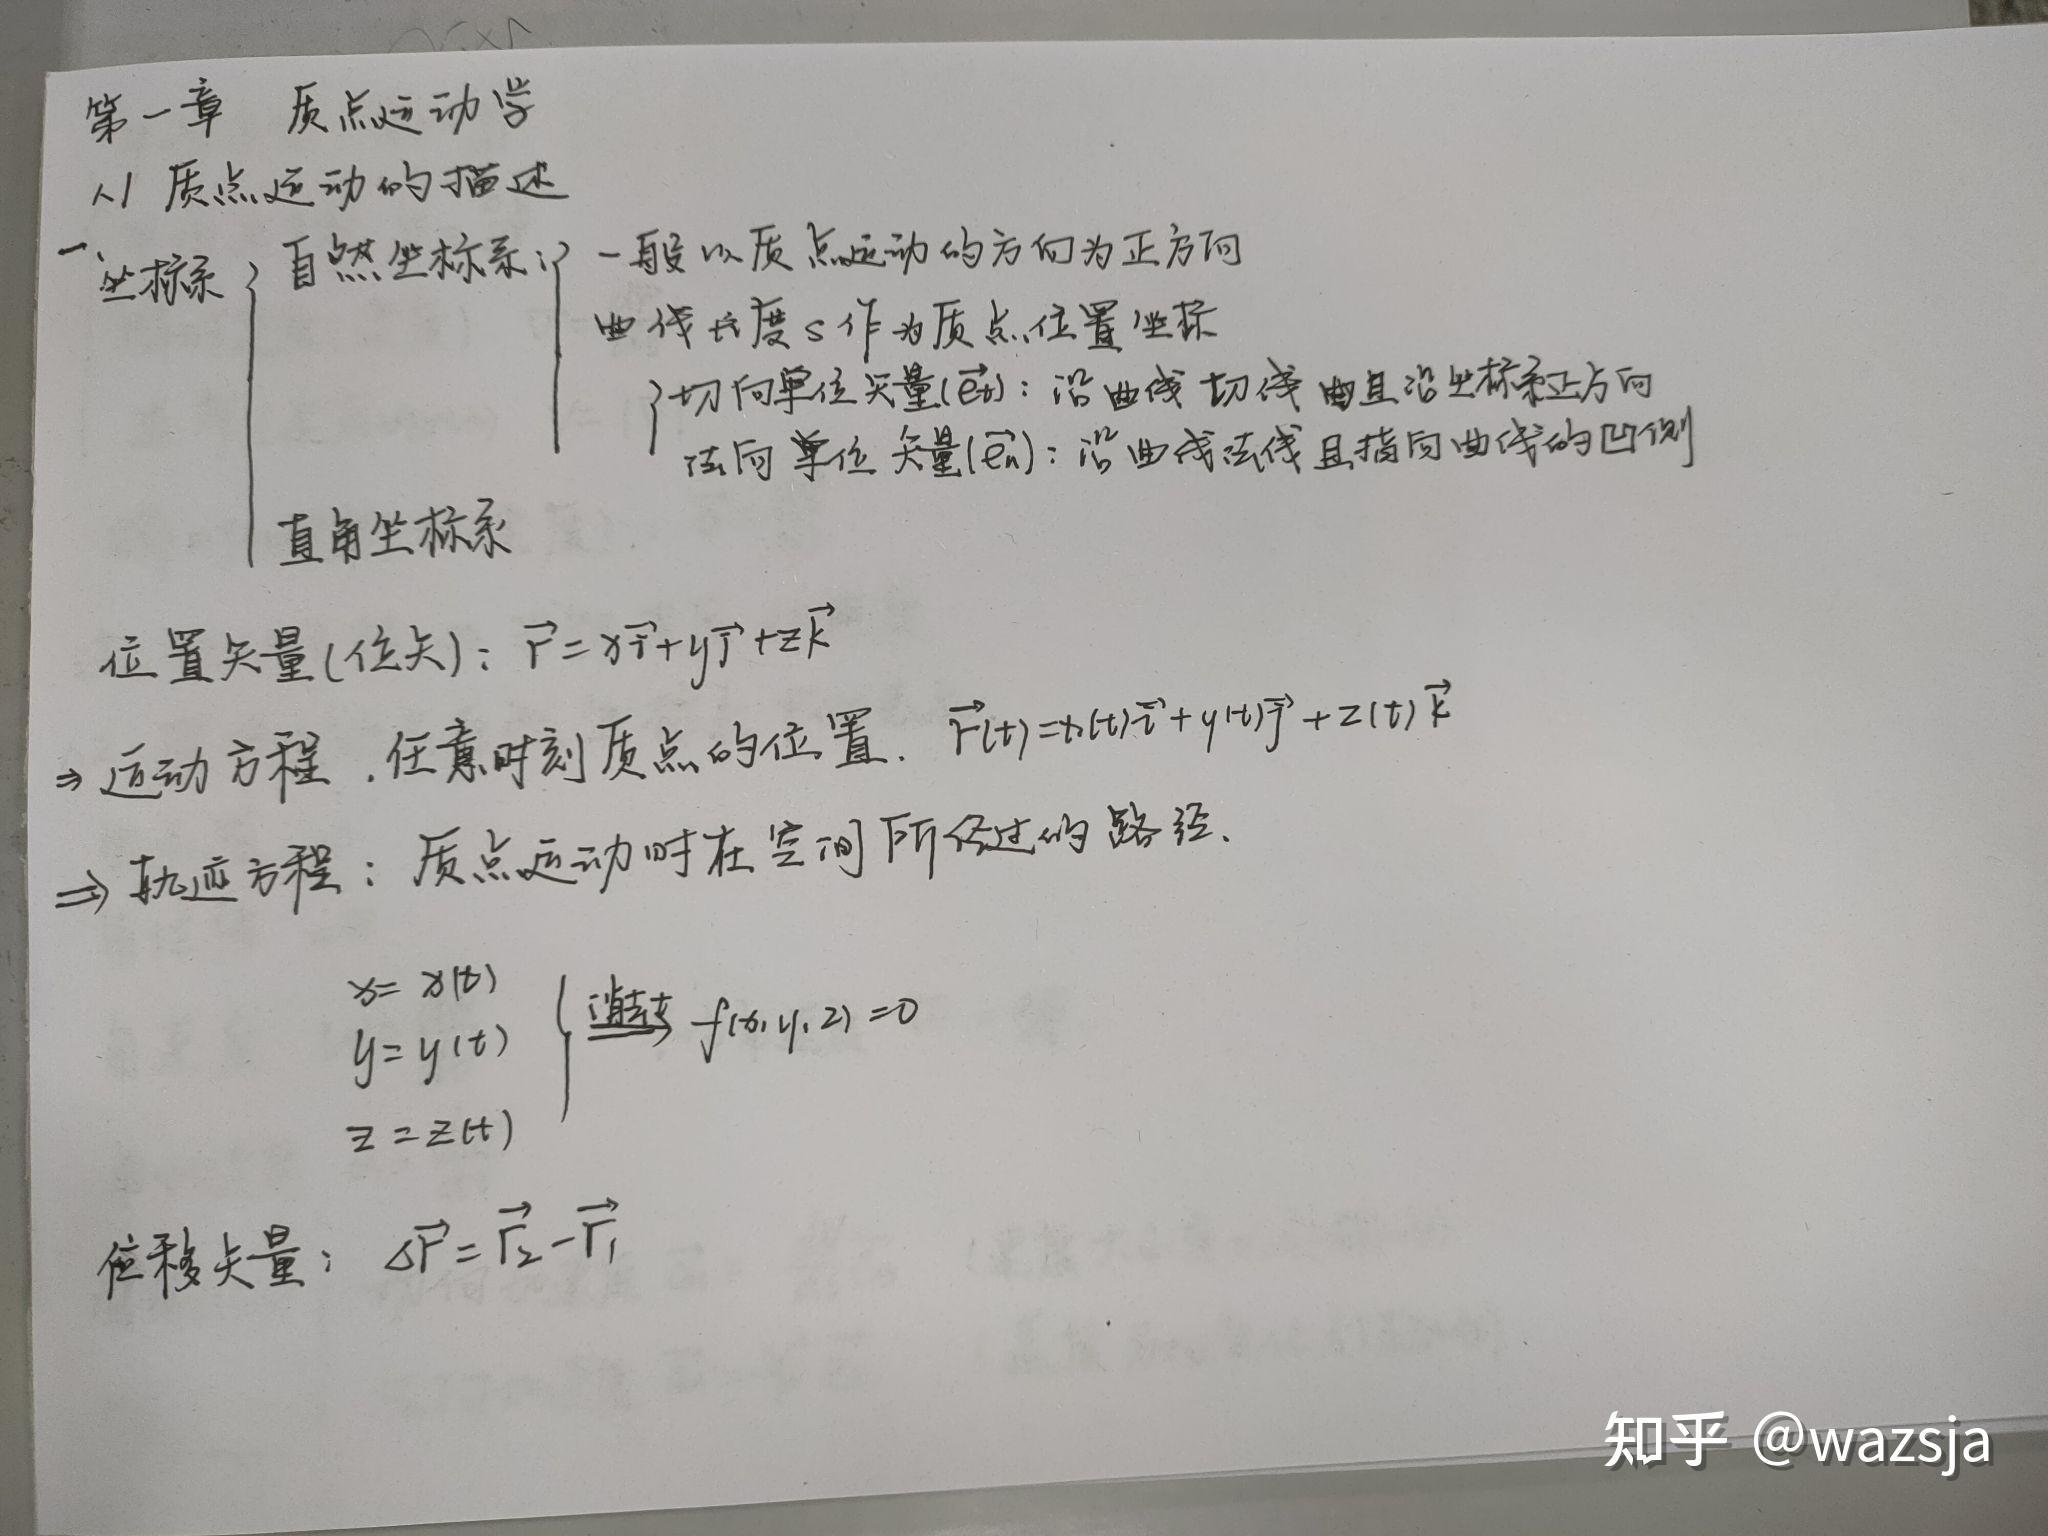 第一章 质点运动学
1.1 质点运动的描述
一、坐标系 { 自然坐标系: { 一般以质点运动的方向为正方向
曲线长度s作为质点位置坐标
{ 切向单位矢量(e⃗t): 沿曲线切线 且沿坐标系正方向
法向单位矢量(e⃗n): 沿曲线法线且指向曲线的凹侧
直角坐标系
位置矢量(位矢): r⃗=xi⃗+yj⃗+zk⃗
⇒ 运动方程.任意时刻质点的位置. r⃗(t)=x(t)i⃗+y(t)j⃗+z(t)k⃗
⇒ 轨迹方程: 质点运动时在空间所经过的路径.
x=x(t)
y=y(t)
z=z(t)
} 消去t f(x,y,z)=0
位移矢量: Δr⃗=r⃗2-r⃗1
知乎 @wazsja